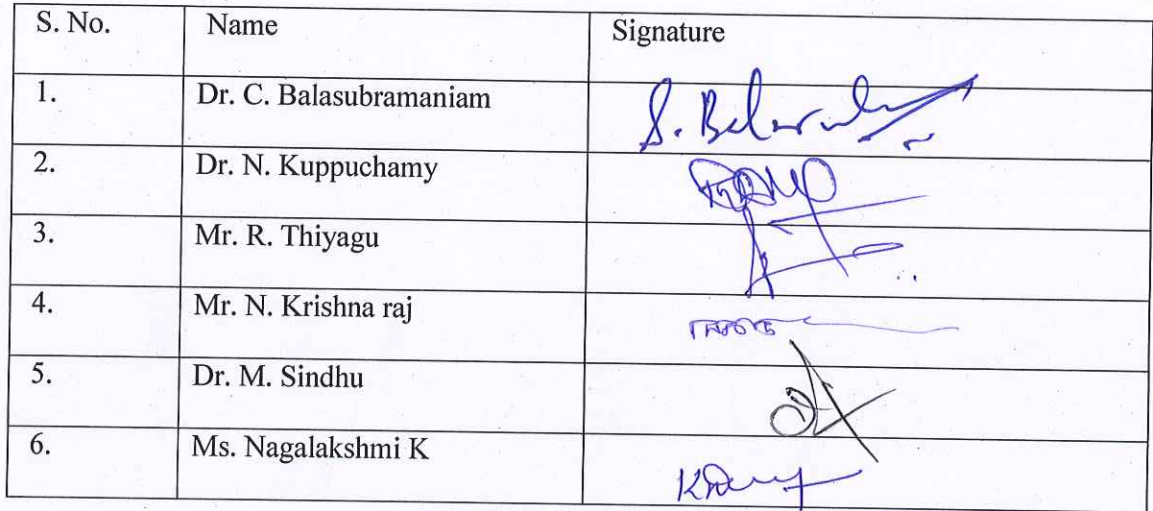 S. No. Name Signature
1. Dr. C. Balasubramaniam S.
2. Dr. N. Kuppuchamy
3. Mr. R. Thiyagu
4. Mr. N. Krishna raj
5. Dr. M. Sindhu
6. Ms. Nagalakshmi K